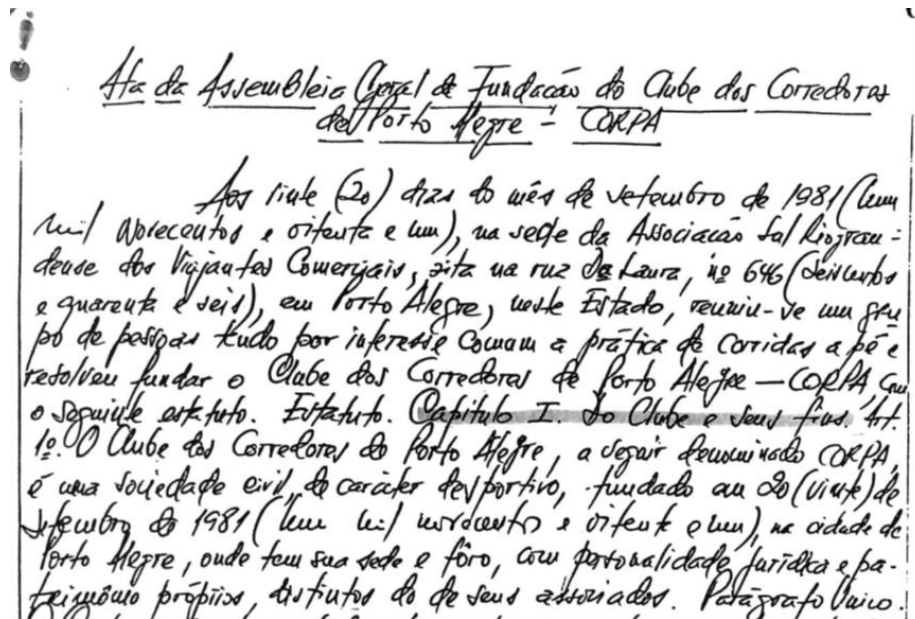 Ata da Assembleia Geral de Fundação do Clube dos Corredores
de Porto Alegre - CORPA
Aos vinte (20) dias do mês de setembro de 1981 (hum
mil novecentos e oitenta e um), na sede da Associação Sul Riogran-
dense dos Viajantes Comerciais, sita na rua Da Laura, nº 646 (seiscentos
e quarenta e seis), em Porto Alegre, neste Estado, reuniu-se um gru
po de pessoas tendo por interesse comum a prática de corridas a pé e
resolveu fundar o Clube dos Corredores de Porto Alegre — CORPA, com
o seguinte estatuto. Estatuto. Capítulo I. Do Clube e seus fins. Art.
1º. O Clube dos Corredores de Porto Alegre, a seguir denominado CORPA,
é uma sociedade civil, de caráter desportivo, fundado em 20 (vinte) de
setembro de 1981 (hum mil novecentos e oitenta e um), na cidade de
Porto Alegre, onde tem sua sede e fôro, com personalidade jurídica e pa-
trimônio próprios, distintos do de seus associados. Parágrafo Único.